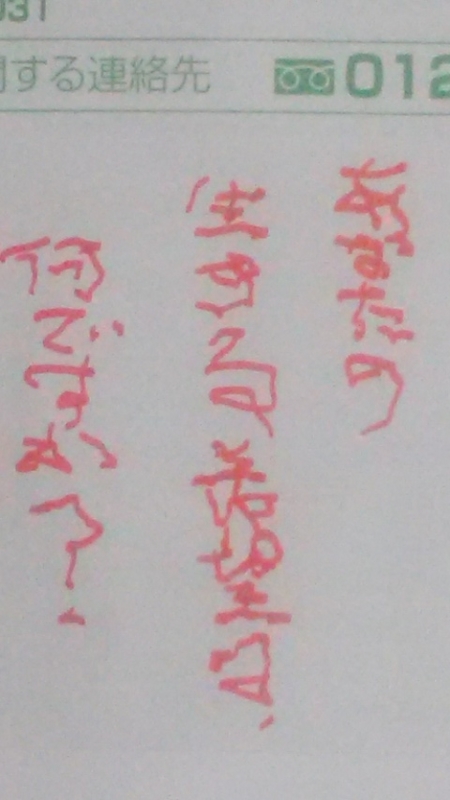 031
する連絡先 012
あなたの
生きる希望は、
何ですか?